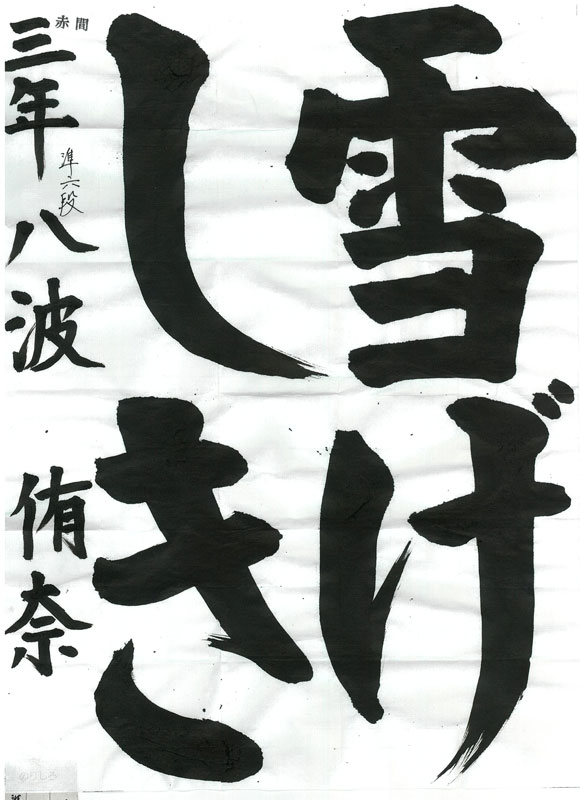 雪げ
しき
三年 八波 侑奈
準六段
赤間